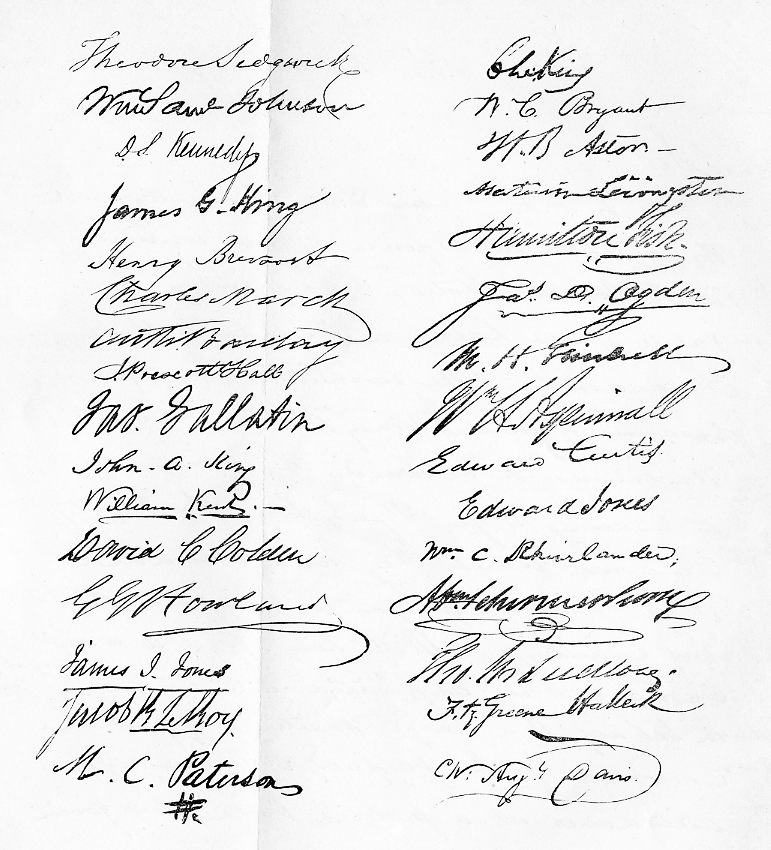 Theodore Sedgwick
Wm Saml Johnson
D. S. Kennedy
James G. King
Henry Brevoort
Charles March
Anth Barclay
J. Prescott Hall
Jas. Gallatin
John. A. King
William Kent.
David C Colden
G G Howland
James I. Jones
Jacob R LeRoy.
M. C. Paterson
Chs King
W. C. Bryant
W. B Astor
Maturin Livingston
Hamilton Fish.
Jas. D. Ogden
M. H. Grinnell
Wm H Aspinwall
Edward Curtis.
Edward Jones
Wm. C. Rhinelander,
Abm Schermerhorn
Tho. W Ludlow.
Fitz Greene Halleck
Ch. Augs Davis.